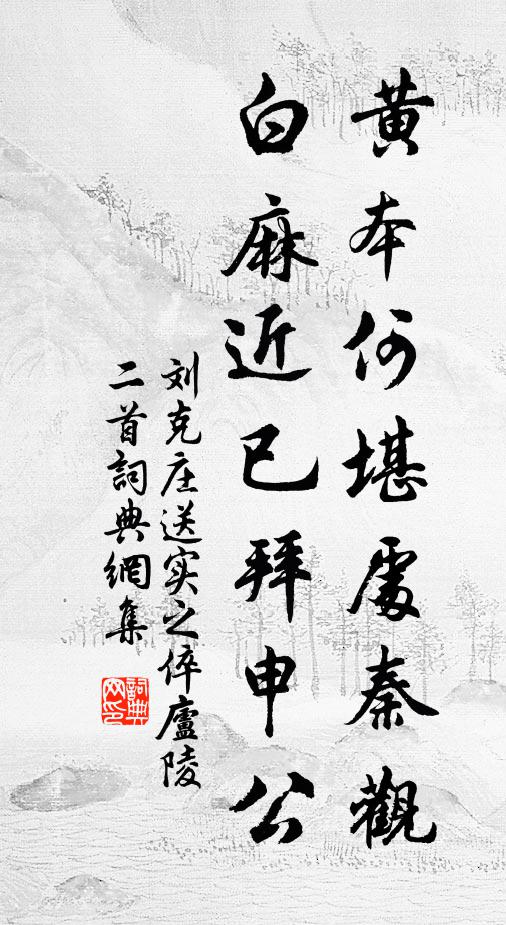 黄本何堪處秦觀
白麻近已拜申公
刘克庄送实之倅廬陵
二首詞典網集
詞典
网印